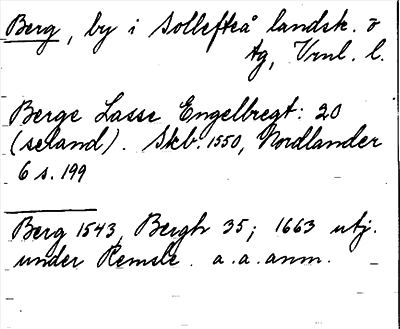 Berg, by i Sollefteå landsk. o
tg, Vrnl. l.
Berge Lasse Engelbregt: 20
(seland). Skb. 1550, Nordlander
6 s. 199
Berg 1543, Bergh 35; 1663 utj.
under Remsle. a.a.anm.